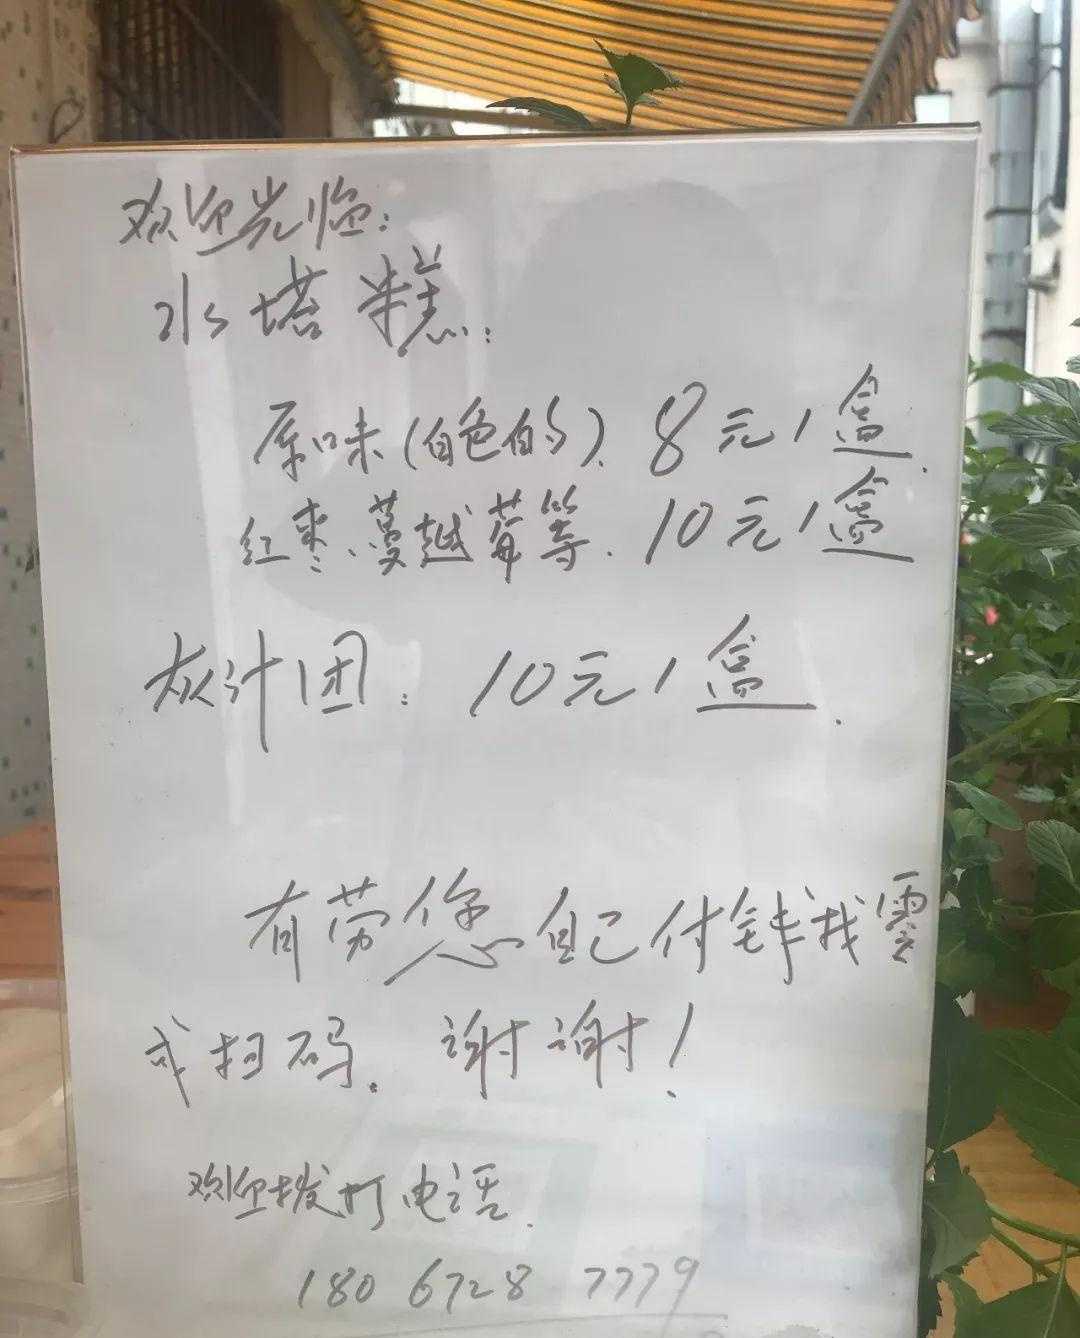 欢迎光临:
水塔糕:
原味(白色的). 8元1盒.
红枣、蔓越莓等. 10元1盒
灰汁团: 10元1盒.
有劳您自己付钱找零
或扫码. 谢谢!
欢迎拨打电话.
180 6728 7779